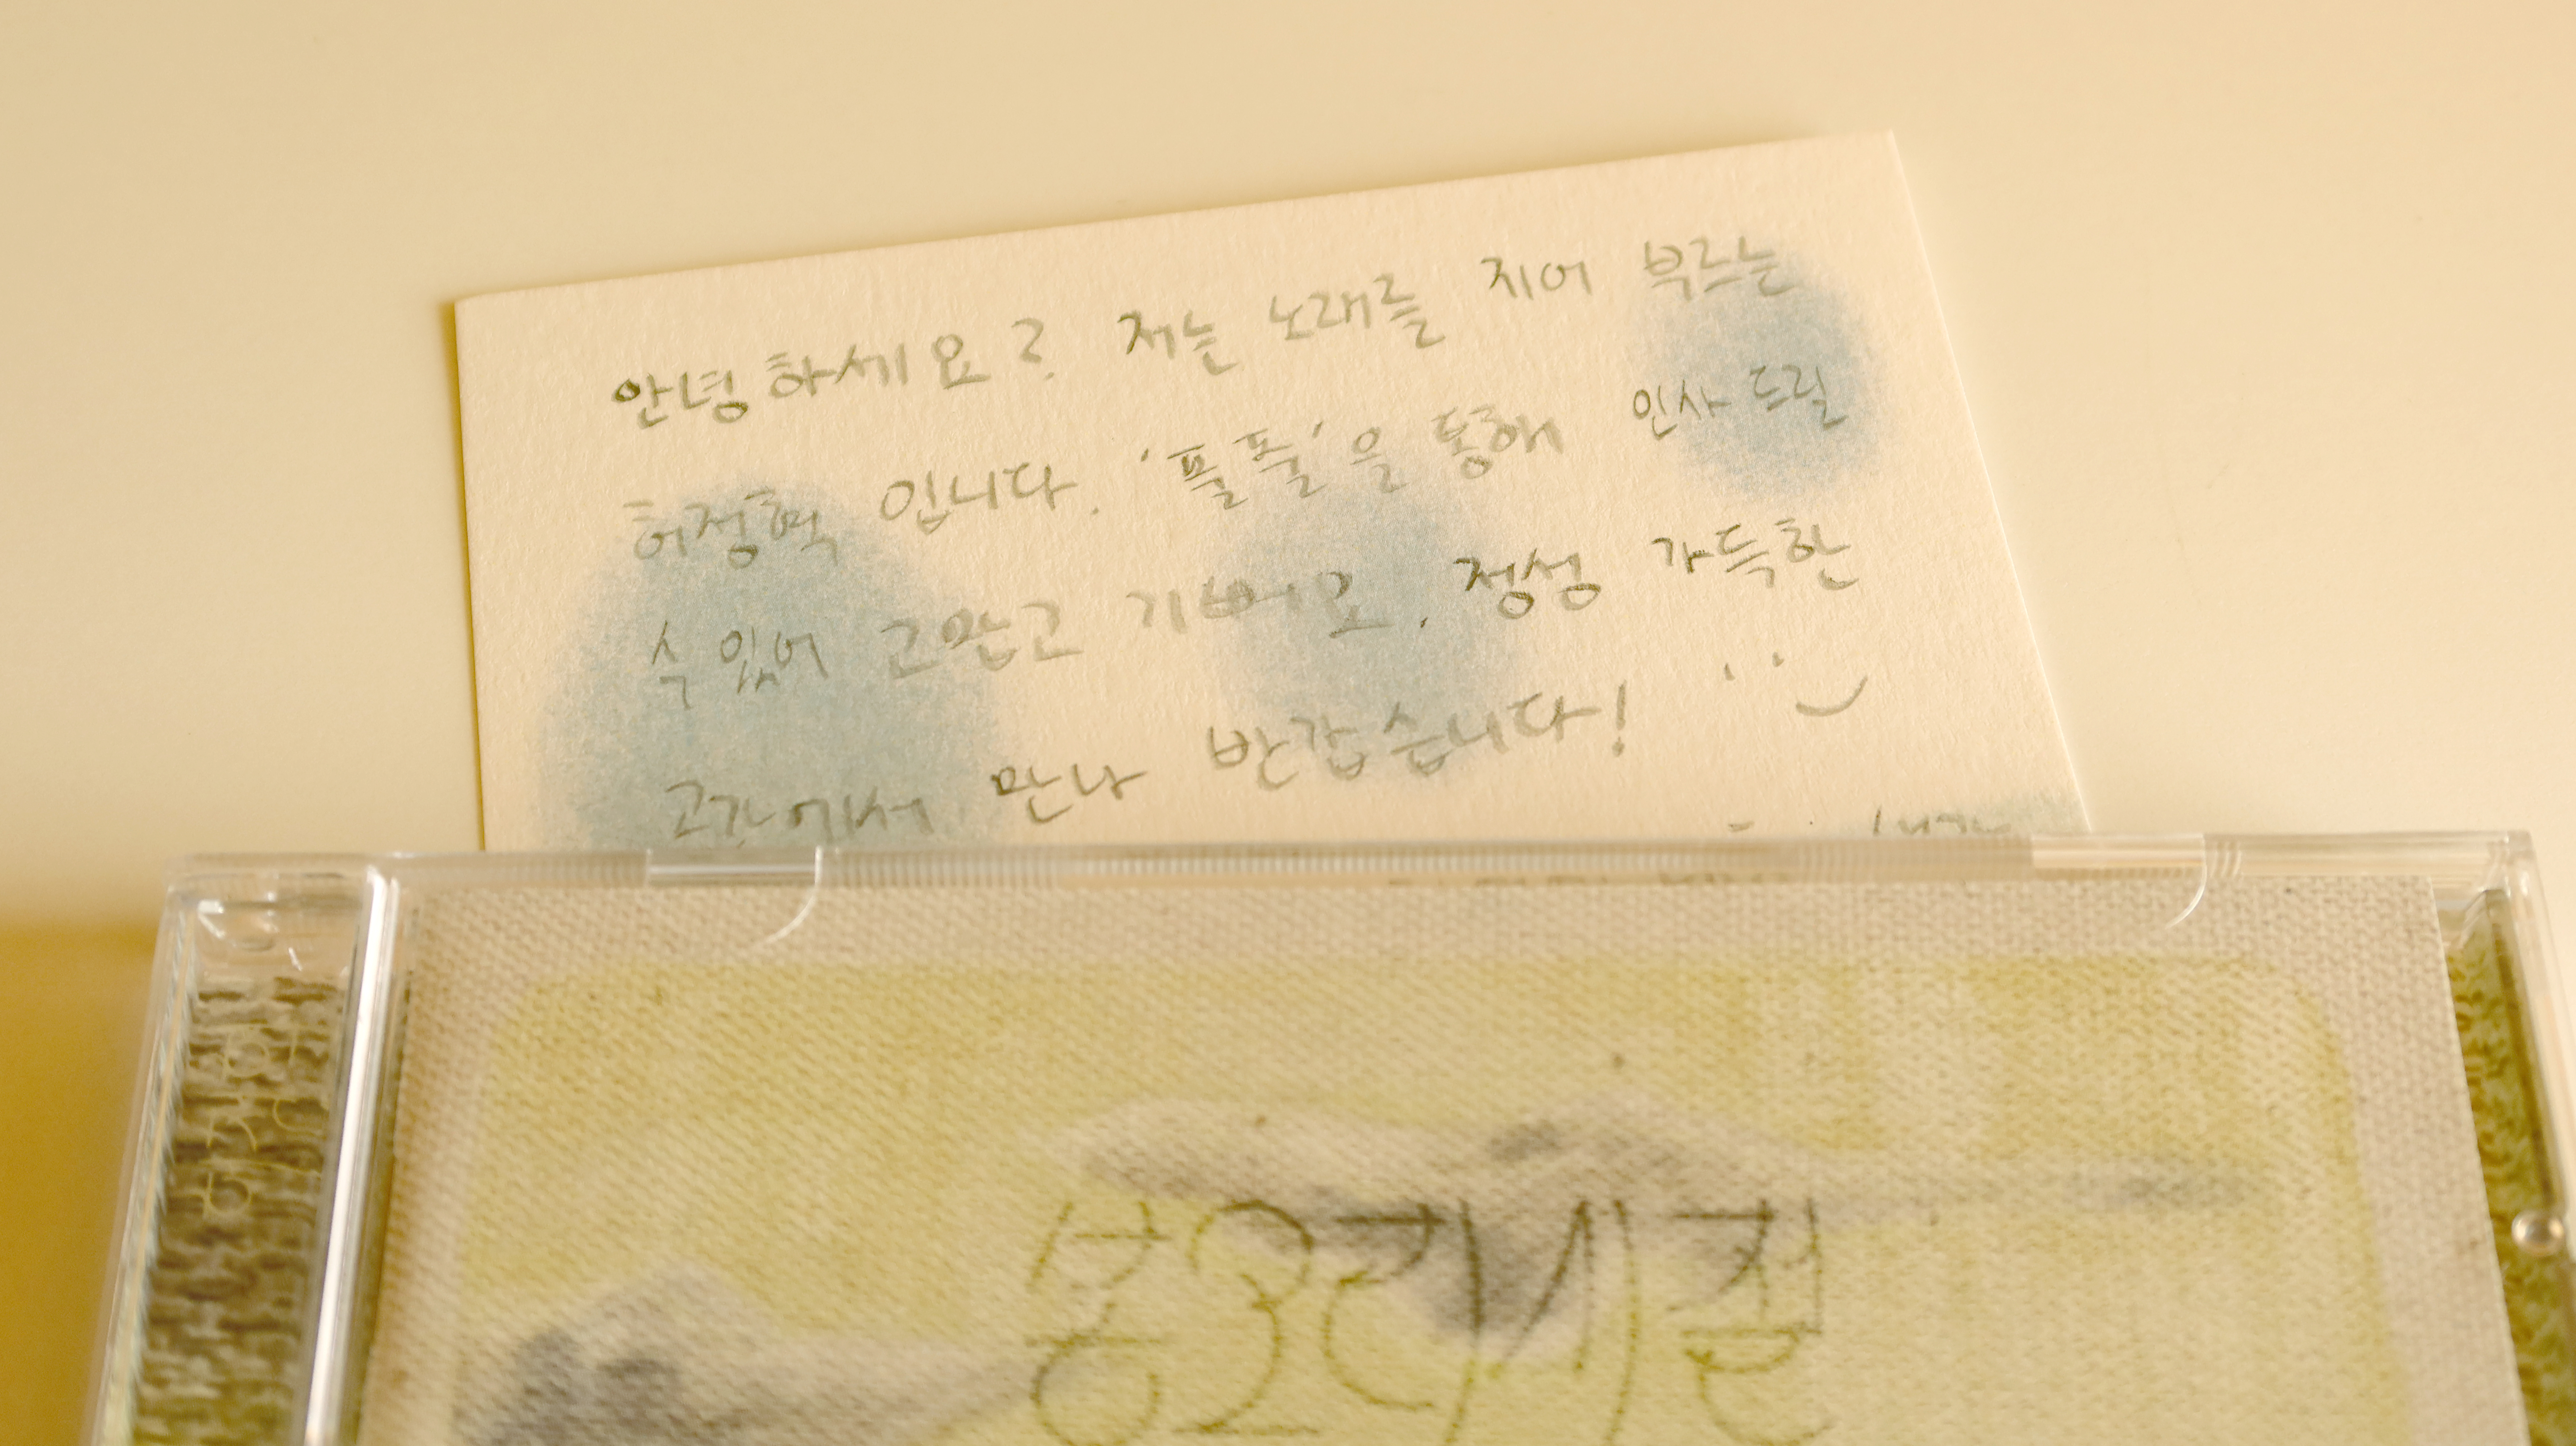 안녕하세요? 저는 노래를 지어 부르는
허정혁 입니다. '풀풀'을 통해 인사 드릴
수 있어 고맙고 기뻐요. 정성 가득한
공간에서 만나 반갑습니다!